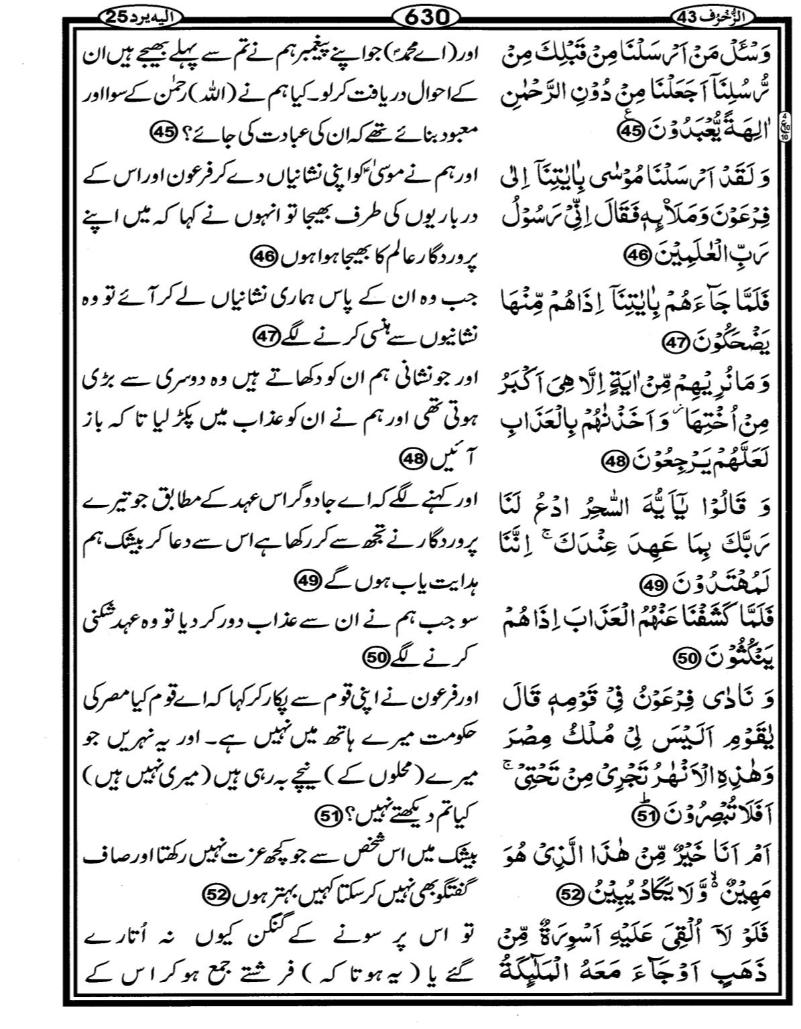 الزُّخْرُف 43
630
الیہ یرد 25
وَسْـَٔلْ مَنْ اَرْسَلْنَا مِنْ قَبْلِكَ مِنْ
رُّسُلِنَاۤ اَجَعَلْنَا مِنْ دُوْنِ الرَّحْمٰنِ
اٰلِهَةً يُّعْبَدُوْنَ ﴿45﴾
وَ لَقَدْ اَرْسَلْنَا مُوْسٰى بِاٰيٰتِنَاۤ اِلٰى
فِرْعَوْنَ وَمَلَا۟ئِهٖ فَقَالَ اِنِّيْ رَسُوْلُ
رَبِّ الْعٰلَمِيْنَ ﴿46﴾
فَلَمَّا جَآءَهُمْ بِاٰيٰتِنَاۤ اِذَاهُمْ مِّنْهَا
يَضْحَكُوْنَ ﴿47﴾
وَ مَا نُرِيْهِمْ مِّنْ اٰيَةٍ اِلَّا هِىَ اَكْبَرُ
مِنْ اُخْتِهَا ز وَ اَخَذْنٰهُمْ بِالْعَذَابِ
لَعَلَّهُمْ يَرْجِعُوْنَ ﴿48﴾
وَ قَالُوْا يٰۤاَيُّهَ السّٰحِرُ ادْعُ لَنَا
رَبَّكَ بِمَا عَهِدَ عِنْدَكَ ۚ اِنَّنَا
لَمُهْتَدُوْنَ ﴿49﴾
فَلَمَّا كَشَفْنَا عَنْهُمُ الْعَذَابَ اِذَا هُمْ
يَنْكُثُوْنَ ﴿50﴾
وَ نَادٰى فِرْعَوْنُ فِيْ قَوْمِهٖ قَالَ
يٰقَوْمِ اَلَيْسَ لِيْ مُلْكُ مِصْرَ
وَهٰذِهِ الْاَنْهٰرُ تَجْرِيْ مِنْ تَحْتِيْ ۚ
اَفَلَا تُبْصِرُوْنَ ﴿51﴾
اَمْ اَنَا خَيْرٌ مِّنْ هٰذَا الَّذِيْ هُوَ
مَهِيْنٌ ۙ وَّلَا يَكَادُ يُبِيْنُ ﴿52﴾
فَلَوْ لَاۤ اُلْقِيَ عَلَيْهِ اَسْوِرَةٌ مِّنْ
ذَهَبٍ اَوْ جَآءَ مَعَهُ الْمَلٰٓئِكَةُ
اور (اے محمدؐ) جو اپنے پیغمبر ہم نے تم سے پہلے بھیجے ہیں ان
کے احوال دریافت کر لو۔ کیا ہم نے (اللہ) رحمٰن کے سوا اور
معبود بنائے تھے کہ ان کی عبادت کی جائے؟ ﴿45﴾
اور ہم نے موسیٰؑ کو اپنی نشانیاں دے کر فرعون اور اس کے
درباریوں کی طرف بھیجا تو انہوں نے کہا کہ میں اپنے
پروردگار عالم کا بھیجا ہوا ہوں ﴿46﴾
جب وہ ان کے پاس ہماری نشانیاں لے کر آئے تو وہ
نشانیوں سے ہنسی کرنے لگے ﴿47﴾
اور جو نشانی ہم ان کو دکھاتے ہیں وہ دوسری سے بڑی
ہوتی تھی اور ہم نے ان کو عذاب میں پکڑ لیا تا کہ باز
آئیں ﴿48﴾
اور کہنے لگے کہ اے جادوگر اس عہد کے مطابق جو تیرے
پروردگار نے تجھ سے کر رکھا ہے اس سے دعا کر بیشک ہم
ہدایت یاب ہوں گے ﴿49﴾
سو جب ہم نے ان سے عذاب دور کر دیا تو وہ عہد شکنی
کرنے لگے ﴿50﴾
اور فرعون نے اپنی قوم سے پکار کر کہا کہ اے قوم کیا مصر کی
حکومت میرے ہاتھ میں نہیں ہے۔ اور یہ نہریں جو
میرے (محلوں کے) نیچے بہ رہی ہیں (میری نہیں ہیں)
کیا تم دیکھتے نہیں؟ ﴿51﴾
بیشک میں اس شخص سے جو کچھ عزت نہیں رکھتا اور صاف
گفتگو بھی نہیں کر سکتا کہیں بہتر ہوں ﴿52﴾
تو اس پر سونے کے کنگن کیوں نہ اُتارے
گئے یا (یہ ہوتا کہ) فرشتے جمع ہو کر اس کے